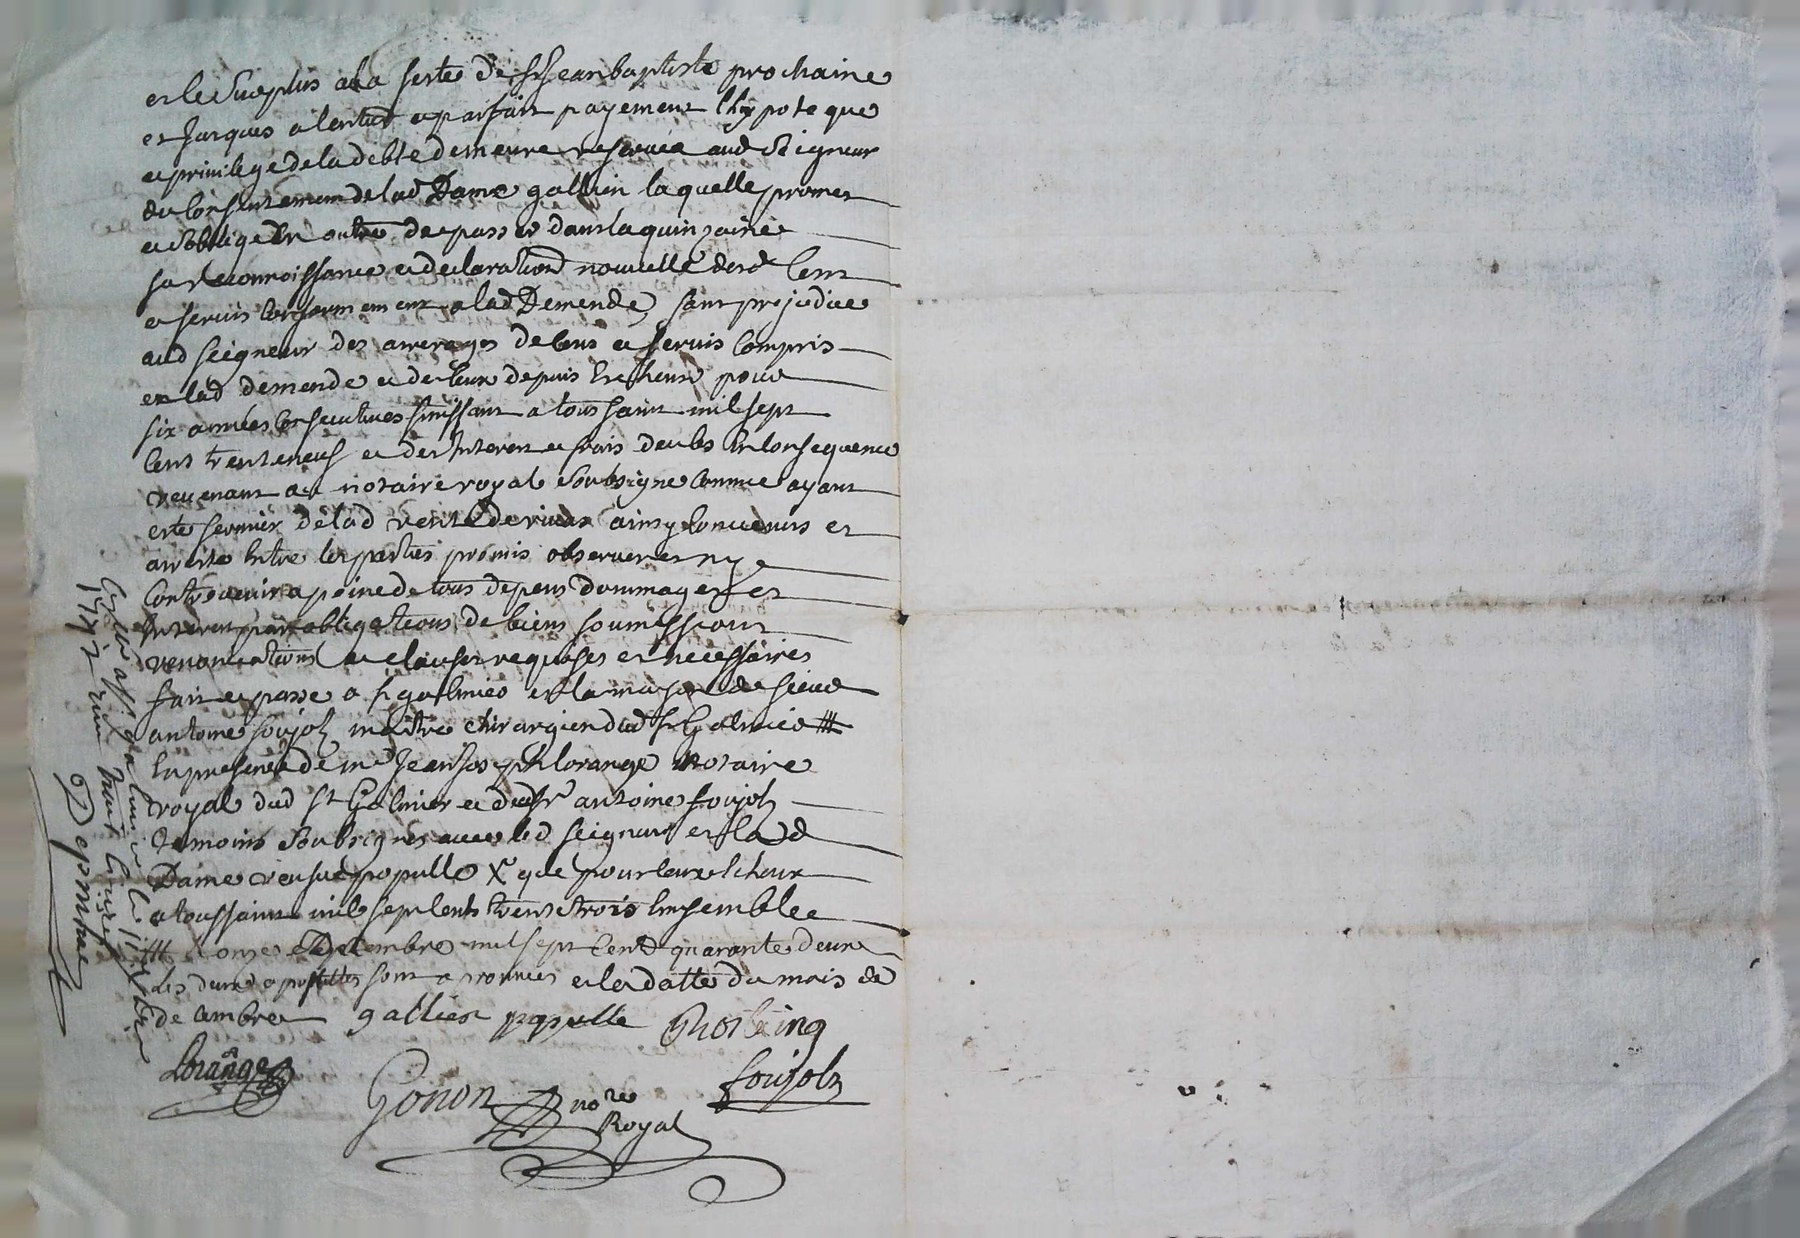 et le surplus a la feste de st Jean baptiste prochaine
et jusques a lentier et parfait payement lhypoteque
et privilege de la debte demeure reservée aud Seigneur
du consentement de lad Dame gallien laquelle promet
et soblige en outre de passer dans la quinzaine
sa reconnoissance et declaration nouvelle desd cens
et servis conformement a lad Demende, sans prejudice
aud seigneur des arrerages de cens et servis compris
en lad demende et de ceux depuis Echeus pour
six années consecutives finissant a toussaint mil sept
cent trente neuf et des Interest et frais deubs En consequence
revenant au notaire royal soubsigne comme ayant
este fermier de lad rente de rivas ainsy convenus et
arreste Entre les parties promis observer et ny
contrevenir a peine de tous depens dommages et
Interest par obligations de biens soumissions
renonciations et clauses requises et necessaires
fait et passe a st galmier et la maison de sieur
antoine foujolz maitre chirurgien dud st Galmier #
En presence de me Jean Joseph lorange Notaire
royal dud st Galmier et dud sr antoine foujolz
temoins soubsignes avec led seigneur et lad
Dame veuve populle X que pour ceux Echeux
a toussaint mil sept cents trente trois Ensemble
# onze decembre mil sept Cent quarante deux
les deux apostilles sont aprouvées et la datte du mois de
decembre gallien populle Rostaing
Lorange
Gonon no.re Royal
foujolz
Controllé a st galmier le
1742 reçu
Depmrae